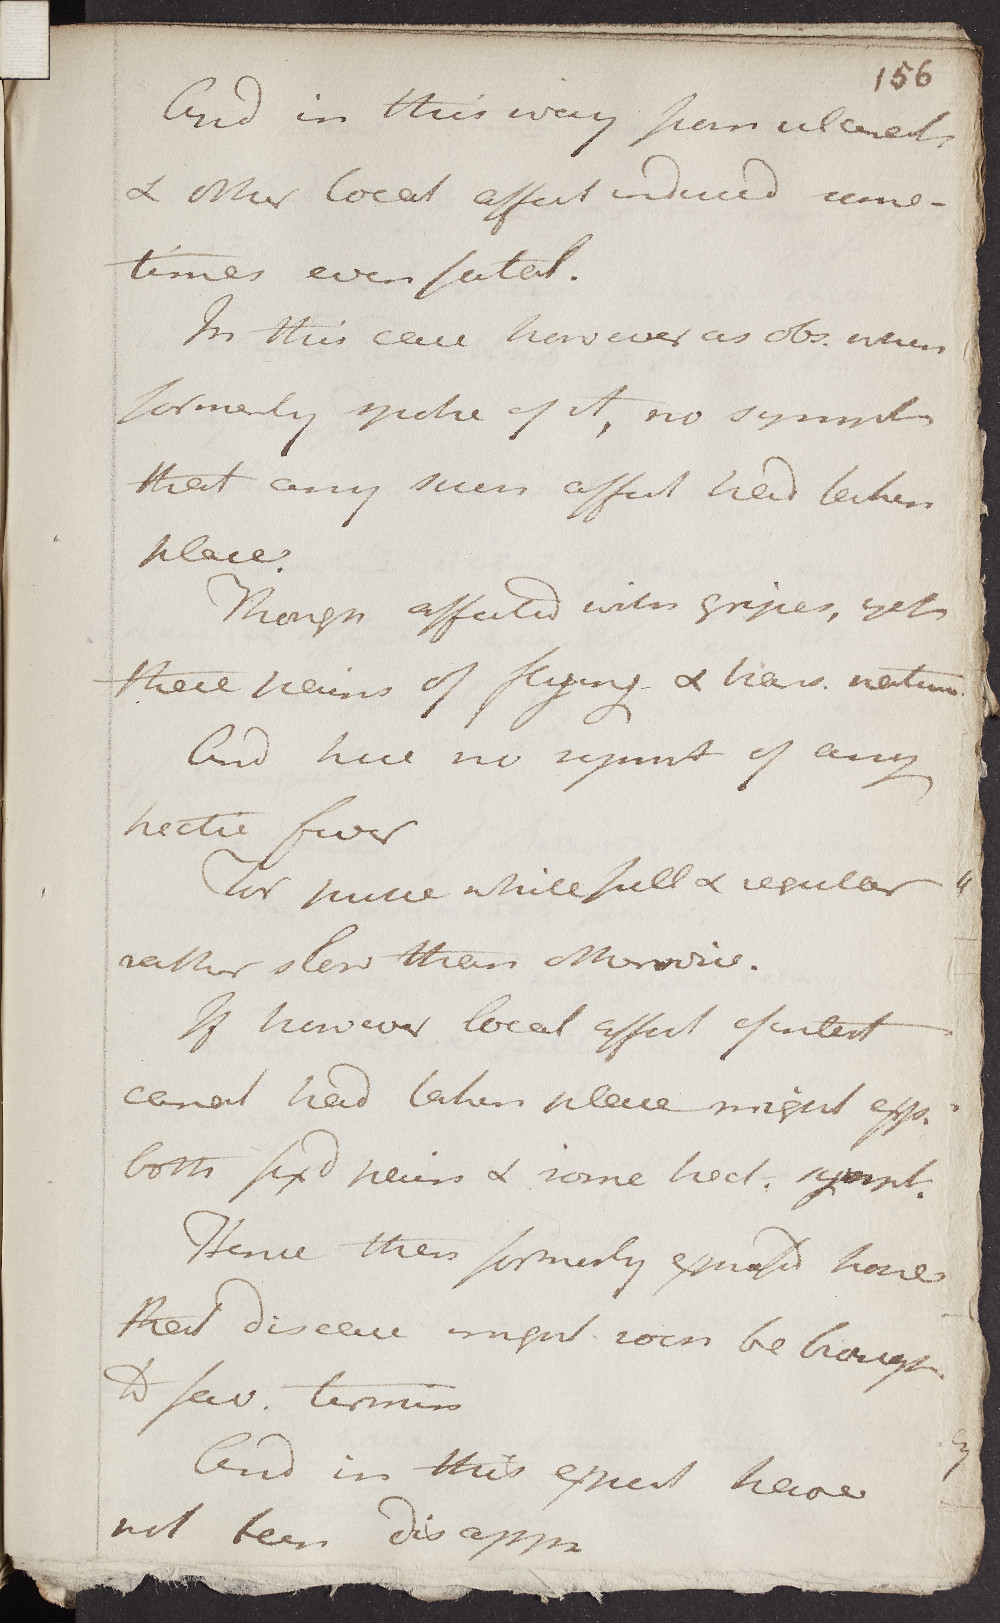 156
And in this way from ulcerat
& other local affect induced some-
times even fatal.
In this case however as obs. when
formerly spoke of it, no sympt
that any such affect had taken
place.
Though affected with gripes, yet
these pains of flying & trans. nature
And here no sympt of any
hectic fever
For pulse while full & regular
rather slow than otherwise.
If however local affect of intest
canal had taken place might app.
both fixd pains & some hect. sympt.
Hence then formerly expressd hopes
that disease might soon be brought
to fav. termin
And in this expect have
not been disapp